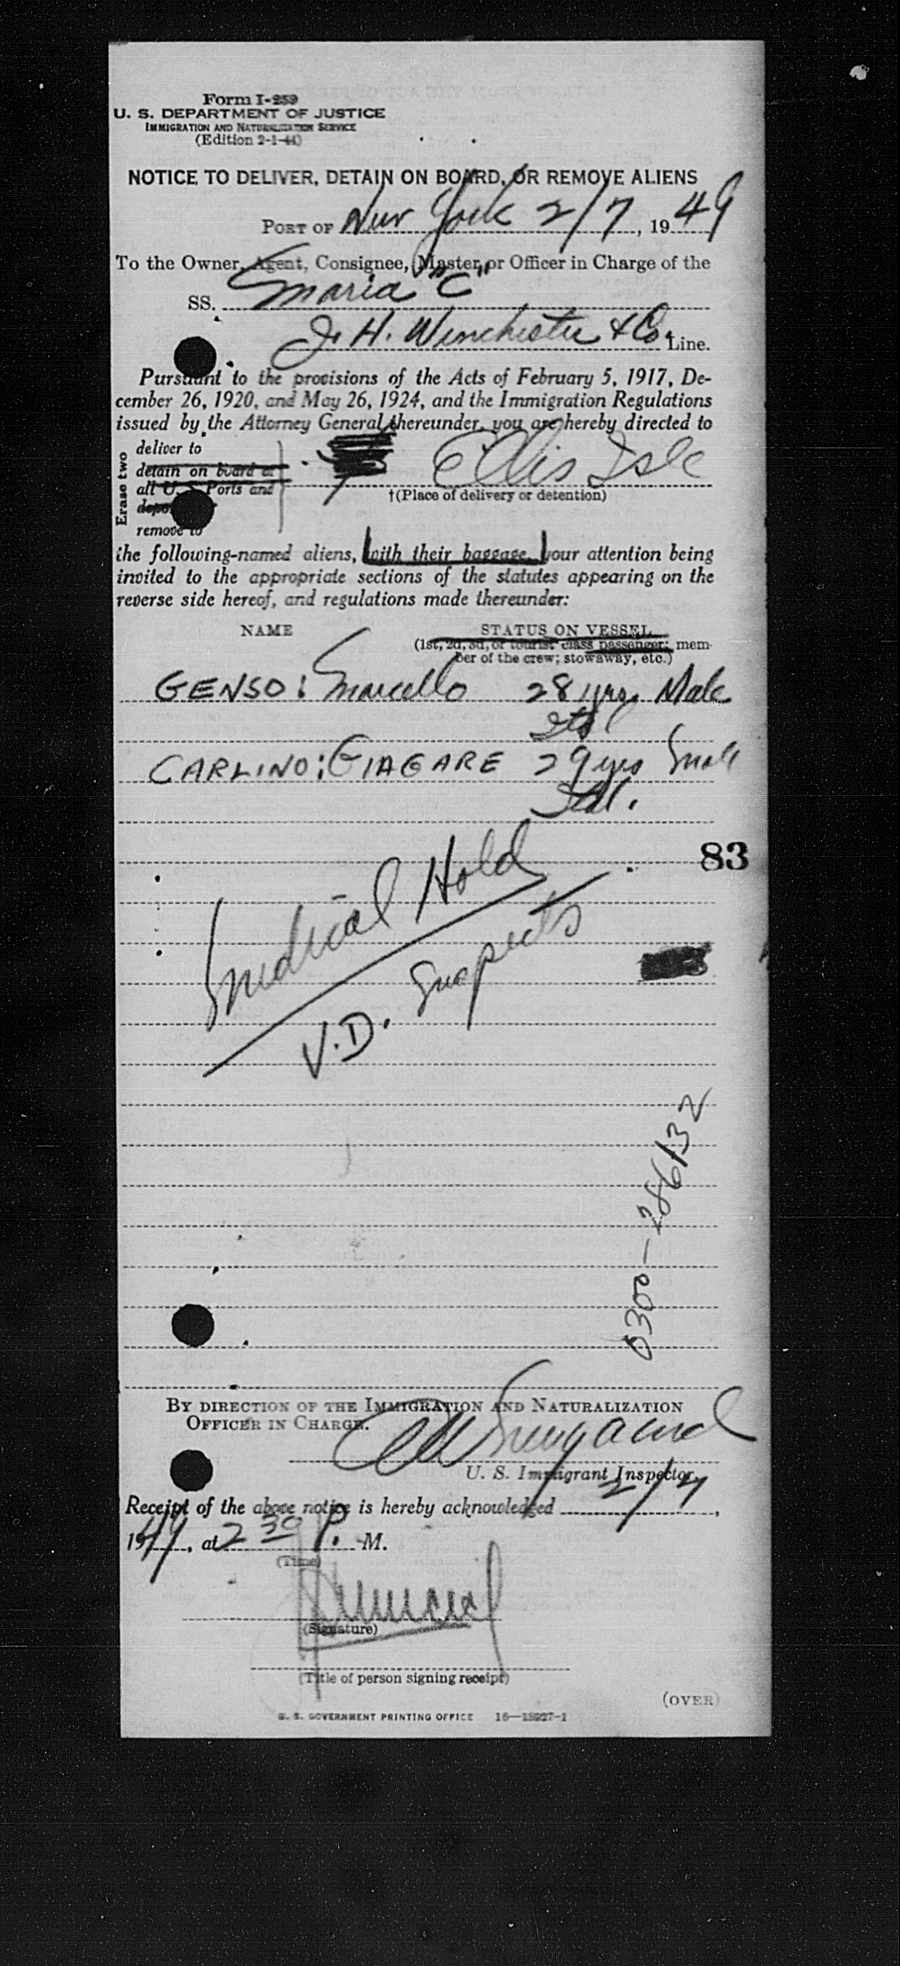 Form I-259
U. S. DEPARTMENT OF JUSTICE
IMMIGRATION AND NATURALIZATION SERVICE
(Edition 2-1-44)
NOTICE TO DELIVER, DETAIN ON BOARD, OR REMOVE ALIENS
PORT OF New York 2/7, 1949
To the Owner, Agent, Consignee, Master, or Officer in Charge of the
SS. Maria "C"
J. H. Winchester & Co. Line.
Pursuant to the provisions of the Acts of February 5, 1917, De-
cember 26, 1920, and May 26, 1924, and the Immigration Regulations
issued by the Attorney General thereunder, you are hereby directed to
Erase two
deliver to
detain on board at
all U. S. Ports and
remove to
Ellis Isle
†(Place of delivery or detention)
the following-named aliens, with their baggage, your attention being
invited to the appropriate sections of the statutes appearing on the
reverse side hereof, and regulations made thereunder:
NAME STATUS ON VESSEL
(1st, 2d, 3d, or tourist class passenger; mem-
ber of the crew; stowaway, etc.)
GENSO: Marcello 28 yrs Male
Ital
CARLINO: GIAGARE 29 yrs Male
Ital.
83
Medical Hold
V.D. Suspects
0300-286132
BY DIRECTION OF THE IMMIGRATION AND NATURALIZATION
OFFICER IN CHARGE.
U. S. Immigrant Inspector
Receipt of the above notice is hereby acknowledged 2/7,
1949, at 2 30 P. M.
(Time)
(Signature)
(Title of person signing receipt)
(OVER)
U. S. GOVERNMENT PRINTING OFFICE 16—13927-1